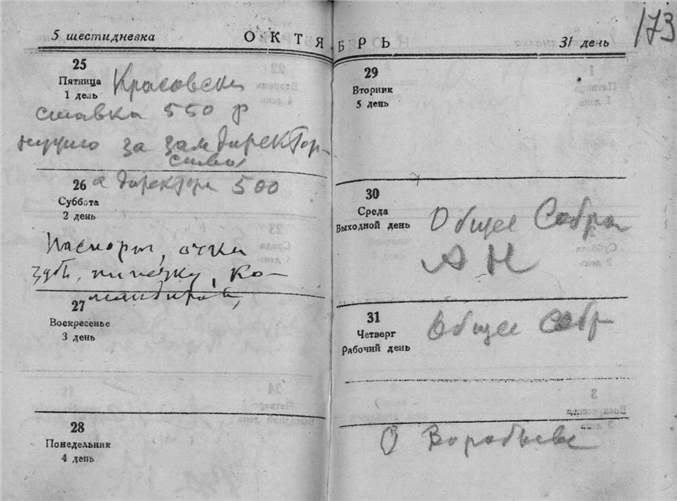 5 шестидневка ОКТЯ
25
Пятница
1 день
Красовски
ставка 550 р
нужно за замдиректор-
ства
26
Суббота
2 день
а директора 500
Паспорт, очки
зубы, ко-
мандиров,
27
Воскресенье
3 день
28
Понедельник
4 день
БРЬ 31 день
173
29
Вторник
5 день
30
Среда
Выходной день
Общее Собра
АН
31
Четверг
Рабочий день
Общее Собр
О Воробьеве